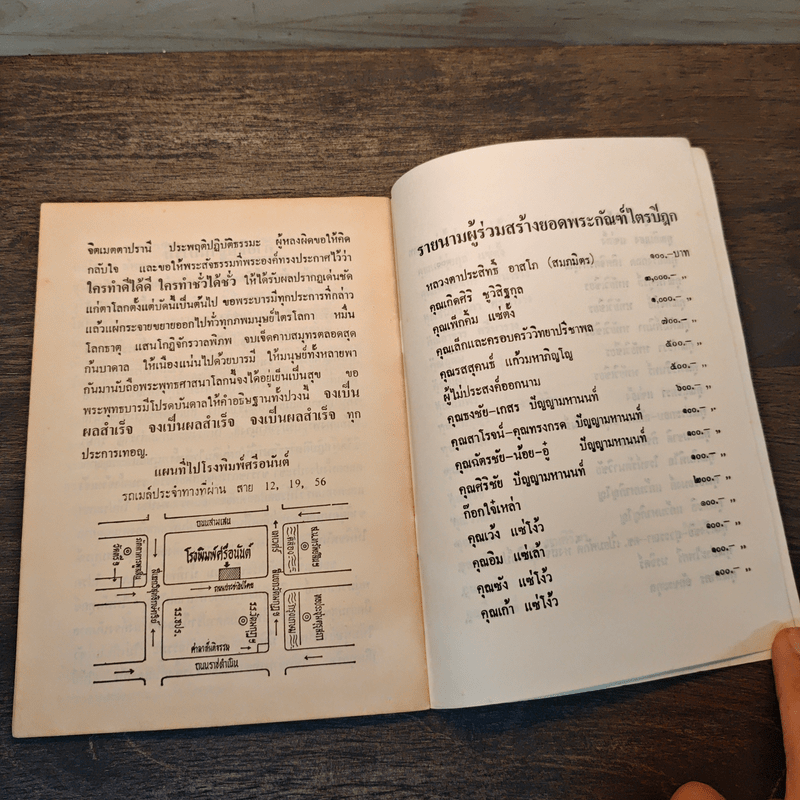 จิตเมตตาปรานี ประพฤติปฏิบัติธรรมะ ผู้หลงผิดขอให้คิด
กลับใจ และขอให้พระสัจธรรมที่พระองค์ทรงประกาศไว้ว่า
ใครทำดีได้ดี ใครทำชั่วได้ชั่ว ให้ได้รับผลปรากฏเด่นชัด
แก่ตาโลกตั้งแต่บัดนี้เป็นต้นไป ขอพระบารมีทุกประการที่กล่าว
แล้วแผ่กระจายขยายออกไปทั่วทุกภพมนุษย์ไตรโลกา หมื่น
โลกธาตุ แสนโกฏิจักรวาลพิภพ จบเจ็ดคาบสมุทรตลอดสุด
ก้นบาดาล ให้เนืองแน่นไปด้วยบารมี ให้มนุษย์ทั้งหลายพา
กันมานับถือพระพุทธศาสนาโลกนี้จึงได้อยู่เย็นเป็นสุข ขอ
พระพุทธบารมีโปรดบันดาลให้คำอธิษฐานทั้งปวงนี้ จงเป็น
ผลสำเร็จ จงเป็นผลสำเร็จ จงเป็นผลสำเร็จ ทุก
ประการเทอญ.
แผนที่ไปโรงพิมพ์ศรีอนันต์
รถเมล์ประจำทางที่ผ่าน สาย 12, 19, 56
ถนนสามเสน
โรงพิมพ์ศรีอนันต์
ถนนประชาธิปไตย
คลอง
รร.วัดมกุฎฯ
ศาลาสันติธรรม
ถนนราชดำเนิน
รายนามผู้ร่วมสร้างยอดพระกัณฑ์ไตรปิฎก
หลวงตาประสิทธิ์ อาสโภ (สมภมิตร) ๑๐๐.–บาท
คุณเกิดศิริ ชูวิสิฐกุล ๒,๐๐๐.– ,,
คุณเพ็กคิ้ม แซ่ตั้ง ๑,๐๐๐.– ,,
คุณเล็กและครอบครัววิทยาปรีชาพล ๗๐๐.– ,,
คุณรสสุคนธ์ แก้วมหาภิญโญ ๕๐๐.– ,,
ผู้ไม่ประสงค์ออกนาม ๕๐๐.– ,,
คุณธงชัย–เกสร ปัญญามหานนท์ ๖๐๐.– ,,
คุณสาโรจน์–คุณทรงกรด ปัญญามหานนท์ ๑๐๐.– ,,
คุณฉัตรชัย–น้อย–อู๋ ปัญญามหานนท์ ๑๐๐.– ,,
คุณศิริชัย ปัญญามหานนท์ ๑๐๐.– ,,
ก๊อกใจ๋เหล่า ๒๐๐.– ,,
คุณเว้ง แซ่โง้ว ๑๐๐.– ,,
คุณอิม แซ่เล้า ๑๐๐.– ,,
คุณซัง แซ่โง้ว ๑๐๐.– ,,
คุณเก้า แซ่โง้ว ๑๐๐.– ,,